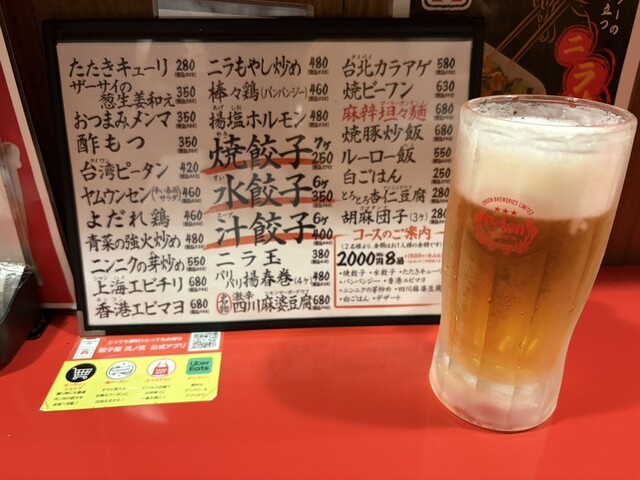 たたきキューリ 280
ザーサイの
葱生姜和え 350
おつまみメンマ 350
酢もつ 350
台湾ピータン 420
ヤムウンセン 460
よだれ鶏 460
青菜の強火炒め 480
ニンニクの芽炒め 550
上海エビチリ 680
香港エビマヨ 680
ニラもやし炒め 480
棒々鶏(バンバンジー) 460
揚塩ホルモン 480
焼餃子 7ヶ 250
水餃子 6ヶ 350
汁餃子 6ヶ 400
ニラ玉 380
パリパリ揚春巻(4ヶ) 480
名物 激辛 四川麻婆豆腐 680
台北カラアゲ 580
焼ビーフン 630
麻辣坦々麺 680
焼豚炒飯 680
ルーロー飯 550
白ごはん 250
とろとろ杏仁豆腐 280
胡麻団子(3ヶ) 280
コースのご案内
(2名様より、金額はお1人様の金額です)
2000円 8品
・焼餃子・水餃子・たたきキューリ
・バンバンジー・香港エビマヨ
・ニンニクの芽炒め・四川麻婆豆腐
・白ごはん・デザート
ORION BREWERIES LIMITED
Orion
とっても便利でとってもお得な
公式アプリ
Uber
Eats